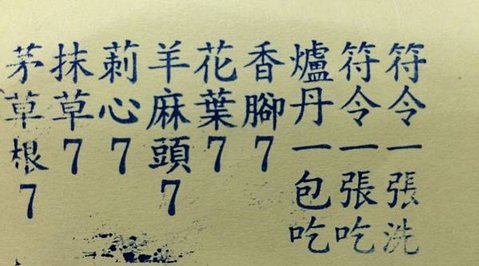 符令一張洗
符令一張吃
爐丹一包吃
香腳7
花葉7
羊麻頭7
莿心7
抹草7
茅草根7